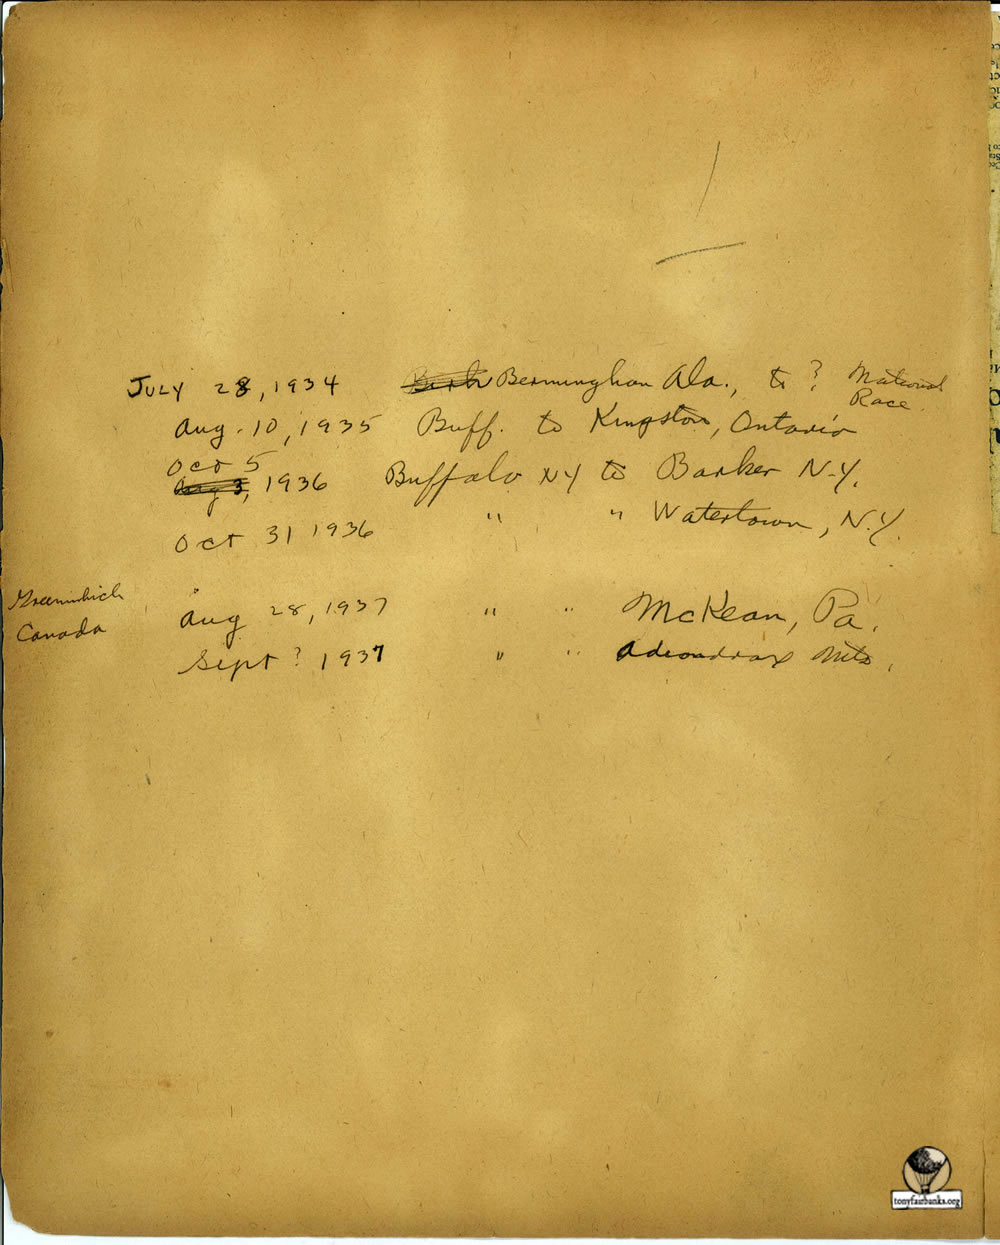 July 28, 1934 Bermingham Ala., to ? National Race.
Aug. 10, 1935 Buff. to Kingston, Ontario
Oct 5
Aug 3, 1936 Buffalo NY to Barker N.Y.
Oct 31 1936 " " Watertown, N.Y.
Greenwhich
Canada
Aug 28, 1937 " " McKean, Pa.
Sept ? 1937 " " Adeondrax Mts.
tonyfairbanks.org